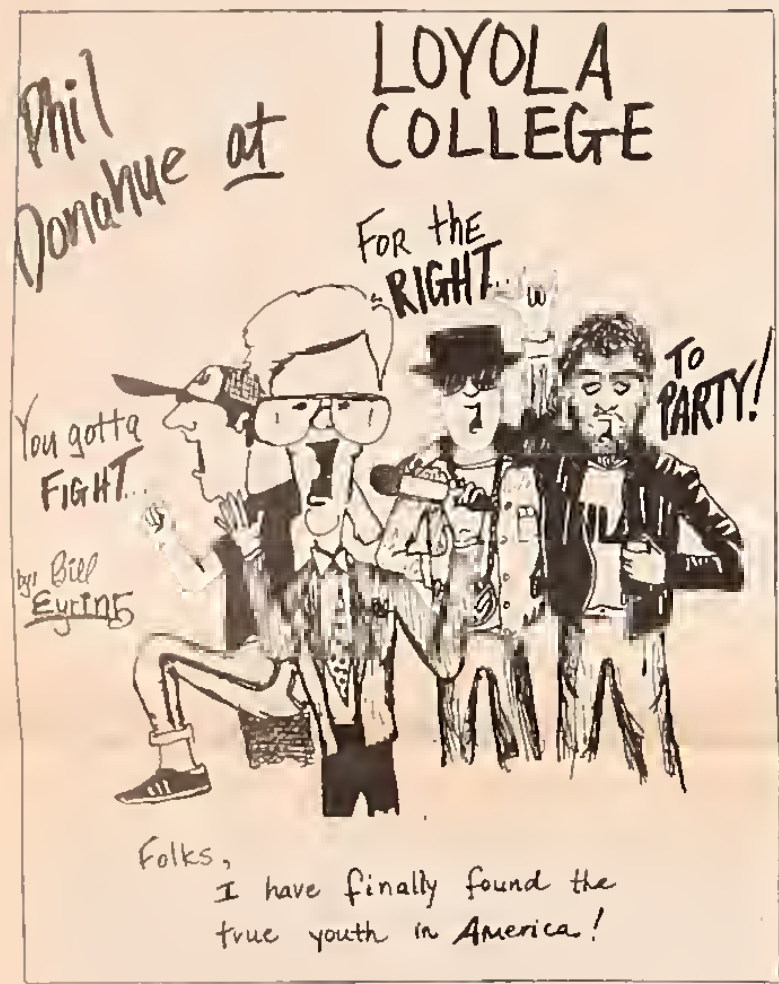 Phil
Donahue at
LOYOLA
COLLEGE
You gotta
FIGHT...
FOR the
RIGHT...
TO
PARTY!
by: Bill
Eyring
Folks,
I have finally found the
true youth in America!